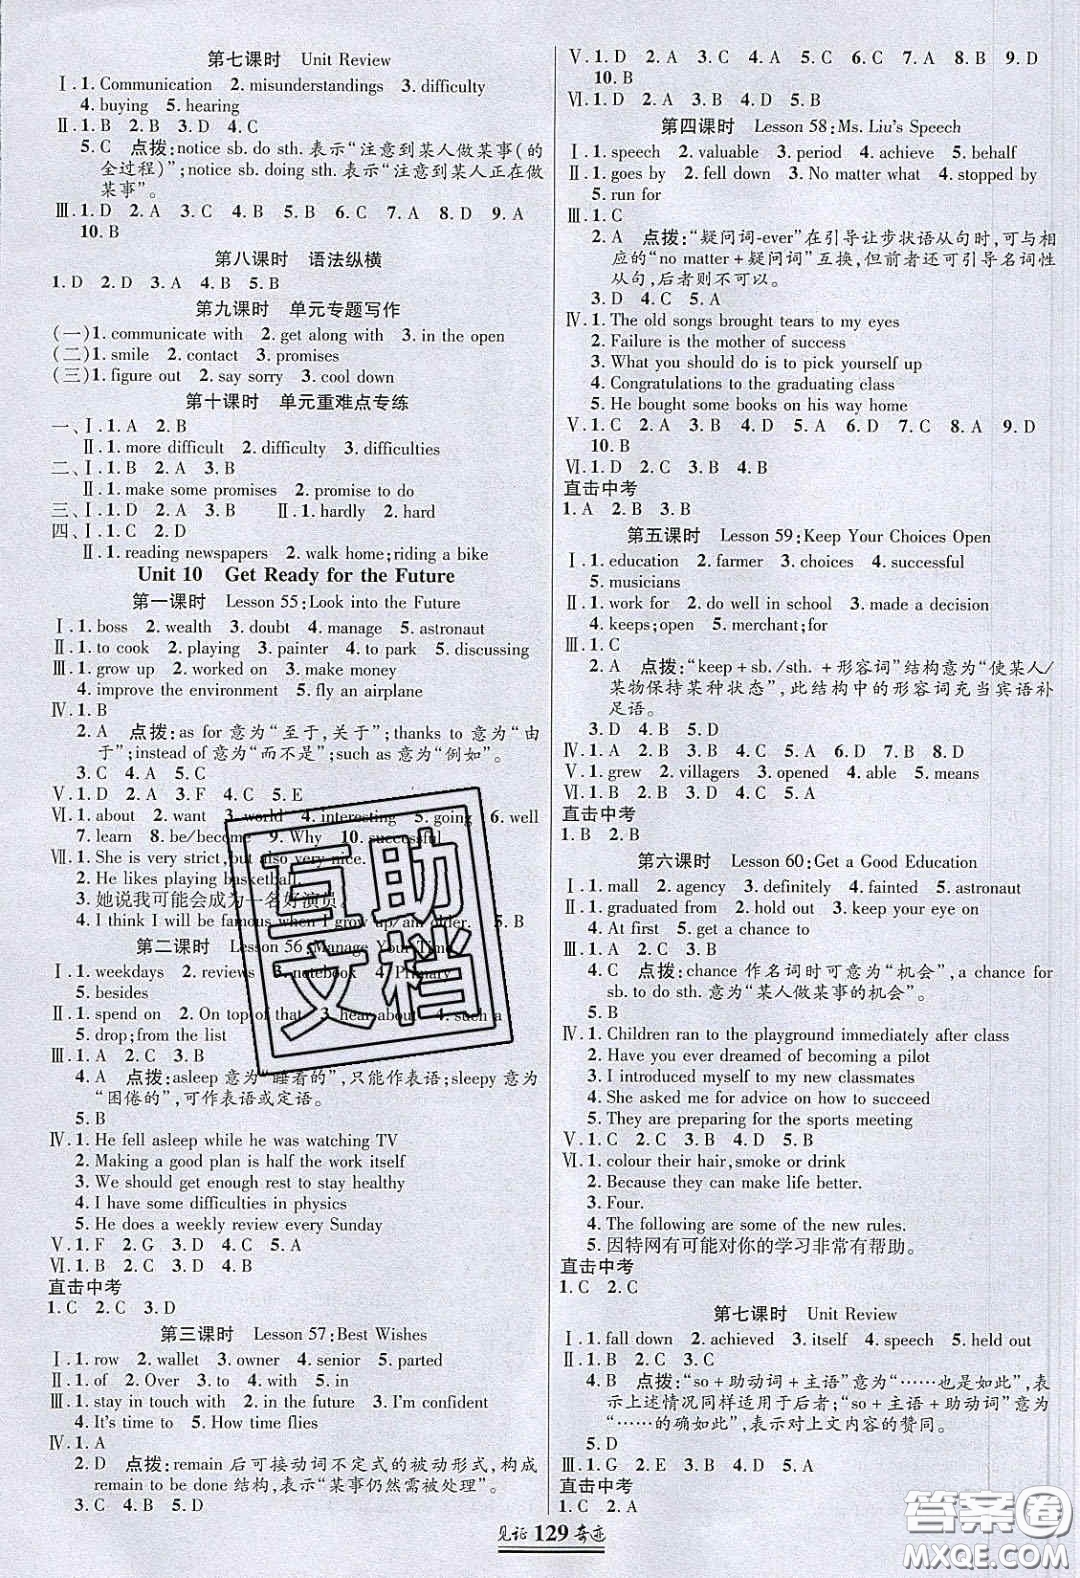 第七课时 Unit Review
Ⅰ.1. Communication 2. misunderstandings 3. difficulty
4. buying 5. hearing
Ⅱ.1. B 2. B 3. D 4. C
5. C 点拨:notice sb. do sth. 表示“注意到某人做某事(的
全过程)”;notice sb. doing sth. 表示“注意到某人正在做
某事”。
Ⅲ.1. D 2. A 3. C 4. B 5. B 6. C 7. A 8. D 9. A
10. B
第八课时 语法纵横
1. D 2. D 3. A 4. B 5. B
第九课时 单元专题写作
(一)1. communicate with 2. get along with 3. in the open
(二)1. smile 2. contact 3. promises
(三)1. figure out 2. say sorry 3. cool down
第十课时 单元重难点专练
一、Ⅰ.1. A 2. B
Ⅱ.1. more difficult 2. difficulty 3. difficulties
二、Ⅰ.1. B 2. A 3. B
Ⅱ.1. make some promises 2. promise to do
三、Ⅰ.1. D 2. A 3. B Ⅱ.1. hardly 2. hard
四、Ⅰ.1. C 2. D
Ⅱ.1. reading newspapers 2. walk home;riding a bike
Unit 10 Get Ready for the Future
第一课时 Lesson 55:Look into the Future
Ⅰ.1. boss 2. wealth 3. doubt 4. manage 5. astronaut
Ⅱ.1. to cook 2. playing 3. painter 4. to park 5. discussing
Ⅲ.1. grow up 2. worked on 3. make money
4. improve the environment 5. fly an airplane
Ⅳ.1. B
2. A 点拨:as for 意为“至于,关于”;thanks to 意为“由
于”;instead of 意为“而不是”;such as 意为“例如”。
3. C 4. A 5. C
Ⅴ.1. D 2. A 3. F 4. C 5. E
Ⅵ.1. about 2. want 3. world 4. interesting 5. going 6. well
7. learn 8. be/become 9. Why 10. successful
Ⅶ.1. She is very strict,but also very nice.
2. He likes playing basketball.
3. 她说我可能会成为一名好演员。
4. I think I will be famous when I grow up/am older. 5. B
第二课时 Lesson 56:Manage Your Time
Ⅰ.1. weekdays 2. reviews 3. notebook 4. Primary
5. besides
Ⅱ.1. spend on 2. On top of that 3. hear about 4. such a
5. drop;from the list
Ⅲ.1. A 2. C 3. A
4. A 点拨:asleep 意为“睡着的”,只能作表语;sleepy 意为
“困倦的”,可作表语或定语。
5. B
Ⅳ.1. He fell asleep while he was watching TV
2. Making a good plan is half the work itself
3. We should get enough rest to stay healthy
4. I have some difficulties in physics
5. He does a weekly review every Sunday
Ⅴ.1. F 2. G 3. D 4. C 5. A
Ⅵ.1. B 2. C 3. D 4. B
直击中考
1. C 2. C 3. D
第三课时 Lesson 57:Best Wishes
Ⅰ.1. row 2. wallet 3. owner 4. senior 5. parted
Ⅱ.1. of 2. Over 3. to 4. with 5. in
Ⅲ.1. stay in touch with 2. in the future 3. I'm confident
4. It's time to 5. How time flies
Ⅳ.1. A
2. D 点拨:remain 后可接动词不定式的被动形式,构成
remain to be done 结构,表示“某事仍然需被处理”。
3. C 4. B 5. A
Ⅴ.1. D 2. A 3. C 4. D 5. A 6. C 7. B 8. B 9. D
10. B
Ⅵ.1. D 2. A 3. C 4. B
第四课时 Lesson 58:Ms. Liu's Speech
Ⅰ.1. speech 2. valuable 3. period 4. achieve 5. behalf
Ⅱ.1. goes by 2. fell down 3. No matter what 4. stopped by
5. run for
Ⅲ.1. C
2. A 点拨:“疑问词-ever”在引导让步状语从句时,可与相
应的“no matter + 疑问词”互换,但前者还可引导名词性
从句,后者则不可以。
3. D 4. C 5. A
Ⅳ.1. The old songs brought tears to my eyes
2. Failure is the mother of success
3. What you should do is to pick yourself up
4. Congratulations to the graduating class
5. He bought some books on his way home
Ⅴ.1. C 2. A 3. B 4. D 5. A 6. D 7. C 8. A 9. D
10. B
Ⅵ.1. D 2. A 3. B 4. B
直击中考
1. A 2. B 3. B
第五课时 Lesson 59:Keep Your Choices Open
Ⅰ.1. education 2. farmer 3. choices 4. successful
5. musicians
Ⅱ.1. work for 2. do well in school 3. made a decision
4. keeps;open 5. merchant;for
Ⅲ.1. C
2. A 点拨:“keep + sb. /sth. + 形容词”结构意为“使某人/
某物保持某种状态”,此结构中的形容词充当宾语补
足语。
3. D 4. B 5. D
Ⅳ.1. A 2. B 3. D 4. C 5. A 6. D 7. B 8. D
Ⅴ.1. grew 2. villagers 3. opened 4. able 5. means
Ⅵ.1. B 2. D 3. C 4. A
直击中考
1. B 2. B
第六课时 Lesson 60:Get a Good Education
Ⅰ.1. mall 2. agency 3. definitely 4. fainted 5. astronaut
Ⅱ.1. graduated from 2. hold out 3. keep your eye on
4. At first 5. get a chance to
Ⅲ.1. A 2. C 3. A
4. C 点拨:chance 作名词时可意为“机会”,a chance for
sb. to do sth. 意为“某人做某事的机会”。
5. B
Ⅳ.1. Children ran to the playground immediately after class
2. Have you ever dreamed of becoming a pilot
3. I introduced myself to my new classmates
4. She asked me for advice on how to succeed
5. They are preparing for the sports meeting
Ⅴ.1. C 2. C 3. B 4. A
Ⅵ.1. colour their hair,smoke or drink
2. Because they can make life better.
3. Four.
4. The following are some of the new rules.
5. 因特网有可能对你的学习非常有帮助。
直击中考
1. C 2. C
第七课时 Unit Review
Ⅰ.1. fall down 2. achieved 3. itself 4. speech 5. held out
Ⅱ.1. B 2. C 3. C
4. B 点拨:“so + 助动词 + 主语”意为“……也是如此”,表
示上述情况同样适用于后者;“so + 主语 + 助动词”意为
“……的确如此”,表示对上文内容的赞同。
5. D
Ⅲ.1. G 2. E 3. B 4. D 5. A
直击中考
1. C 2. A
见证 129 奇迹
互助
文档
答案圈
MXQE.COM